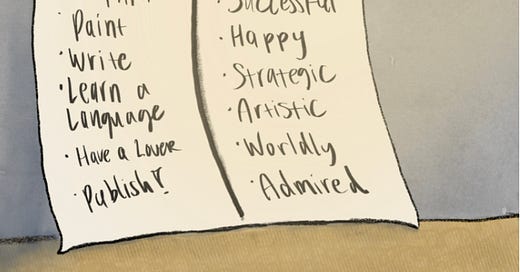 · Paint
· Write
· Learn a
Language
· Have a Lover
· Publish?
· Successful
· Happy
· Strategic
· Artistic
· Worldly
· Admired